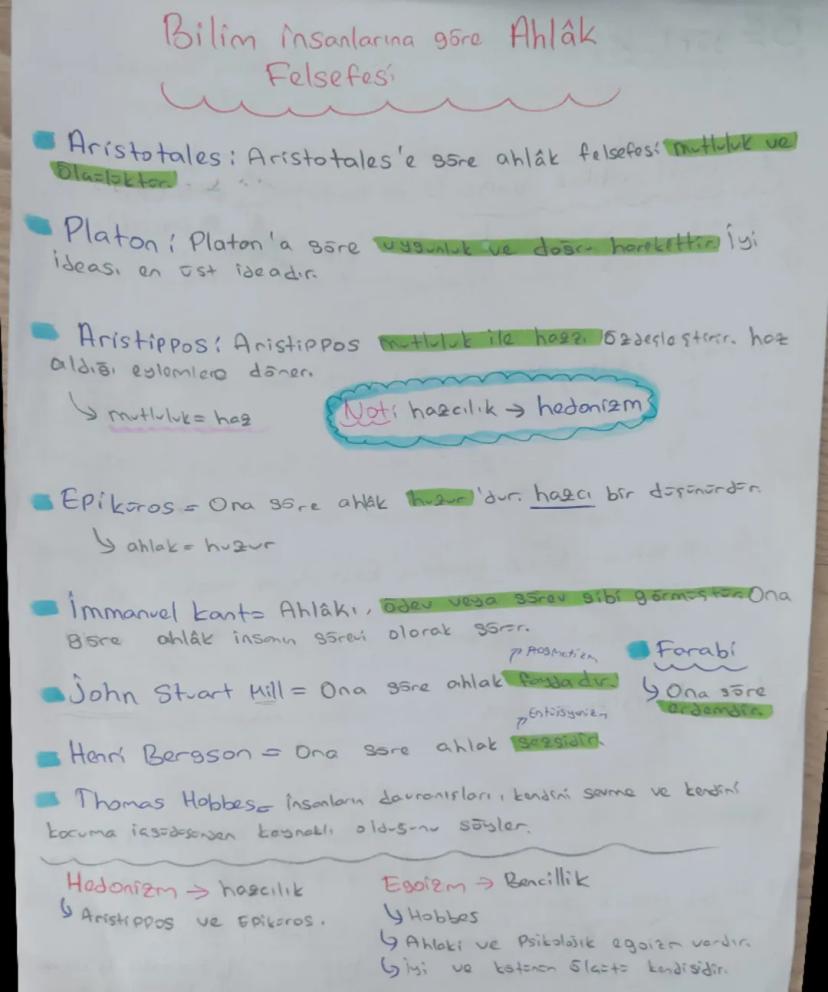 Bilim insanlarına göre Ahlâk
Felsefesi
Aristotales: Aristotales'e göre ahlâk felsefesi mutluluk ve
Platon: Platon'a göre uygunluk ve doğru harekettir İyi
ideası en üst ideadır.
Aristippos: Aristippos mutluluk ile hazzı özdeşleştirir. haz
aldığı eylemlere döner.
↳ mutluluk = haz
Not: hazcılık → hedonizm
Epiküros = Ona göre ahlâk huzur'dur. hazcı bir düşünürdür.
↳ ahlak = huzur
İmmanuel kant = Ahlâkı, ödev veya görev gibi görmüştür. Ona
göre ahlâk insanın görevi olarak görür.
Farabi
↳ Ona göre
erdemdir.
John Stuart Mill = Ona göre ahlak faydadır.
Henri Bergson = Ona göre ahlak sezgidir.
Thomas Hobbes = insanların davranışları, kendini sevme ve kendini
koruma içgüdüsünden kaynaklı olduğunu söyler.
Hedonizm → hazcılık
↳ Aristippos ve Epiküros.
Egoizm → Bencillik
↳ Hobbes
↳ Ahlaki ve Psikolojik egoizm vardır.
↳ İyi ve kötünün ölçütü kendisidir.